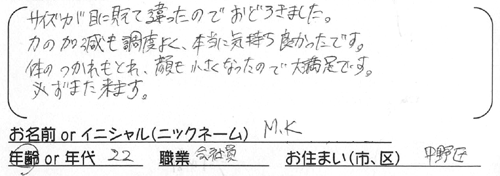 サイズが目に見えて違ったのでおどろきました。
力の加減も調度よく、本当に気持ち良かったです。
体のつかれもとれ、顔も小さくなったので大満足です。
必ずまた来ます。
お名前orイニシャル(ニックネーム) M.K
年齢or年代 22 職業 会社員 お住まい(市、区) 中野区